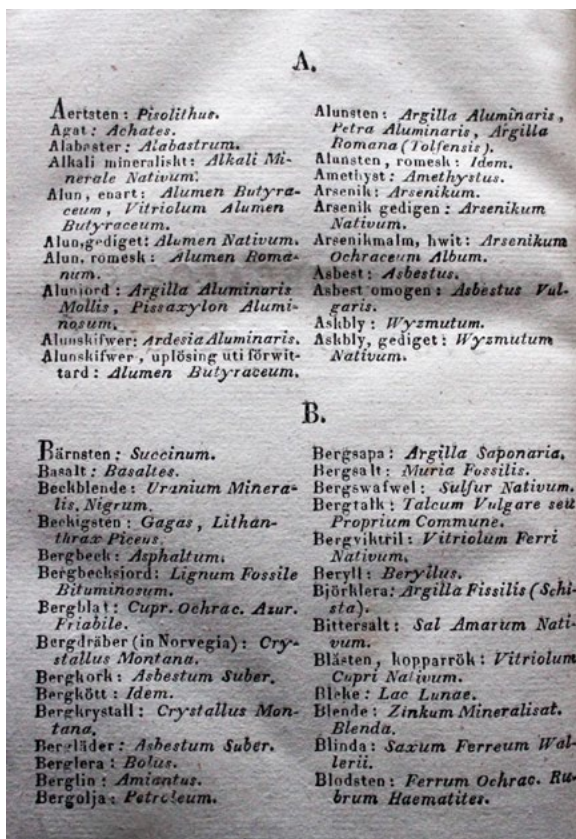 A.
Aertsten: Pisolithus.
Agat: Achates.
Alabaster: Alabastrum.
Alkali mineraliskt: Alkali Mi-
nerale Nativum.
Alun, enart: Alumen Butyra-
ceum, Vitriolum Alumen
Butyraceum.
Alun, gediget: Alumen Nativum.
Alun, romesk: Alumen Roma-
num.
Alunjord: Argilla Aluminaris
Mollis, Pissaxylon Alumi-
nosum.
Alunskifwer: Ardesia Aluminaris.
Alunskifwer, uplösing uti förwit-
tard: Alumen Butyraceum.
Alunsten: Argilla Aluminaris,
Petra Aluminaris, Argilla
Romana (Tolfensis).
Alunsten, romesk: Idem.
Amethyst: Amethystus.
Arsenik: Arsenikum.
Arsenik gedigen: Arsenikum
Nativum.
Arsenikmalm, hwit: Arsenikum
Ochraceum Album.
Asbest: Asbestus.
Asbest omogen: Asbestus Vul-
garis.
Askbly: Wyzmutum.
Askbly, gediget: Wyzmutum
Nativum.
B.
Bärnsten: Succinum.
Basalt: Basaltes.
Beckblende: Uranium Minera-
lis. Nigrum.
Beckigsten: Gagas, Lithan-
thrax Piceus.
Bergbeck: Asphaltum.
Bergbecksjord: Lignum Fossile
Bituminosum.
Bergblat: Cupr. Ochrac. Azur.
Friabile.
Bergdräber (in Norvegia): Cry-
stallus Montana.
Bergkork: Asbestum Suber.
Bergkött: Idem.
Bergkrystall: Crystallus Mon-
tana.
Bergläder: Asbestum Suber.
Berglera: Bolus.
Berglin: Amiantus.
Bergolja: Petroleum.
Bergsapa: Argilla Saponaria.
Bergsalt: Muria Fossilis.
Bergswafwel: Sulfur Nativum.
Bergtalk: Talcum Vulgare seu
Proprium Commune.
Bergviktril: Vitriolum Ferri
Nativum.
Beryll: Beryllus.
Björklera: Argilla Fissilis (Schi-
sta).
Bittersalt: Sal Amarum Nati-
vum.
Blåsten, kopparrök: Vitriolum
Cupri Nativum.
Bleke: Lac Lunae.
Blende: Zinkum Mineralisat.
Blenda.
Blinda: Saxum Ferreum Wal-
lerii.
Blodsten: Ferrum Ochrac. Ru-
brum Haematites.